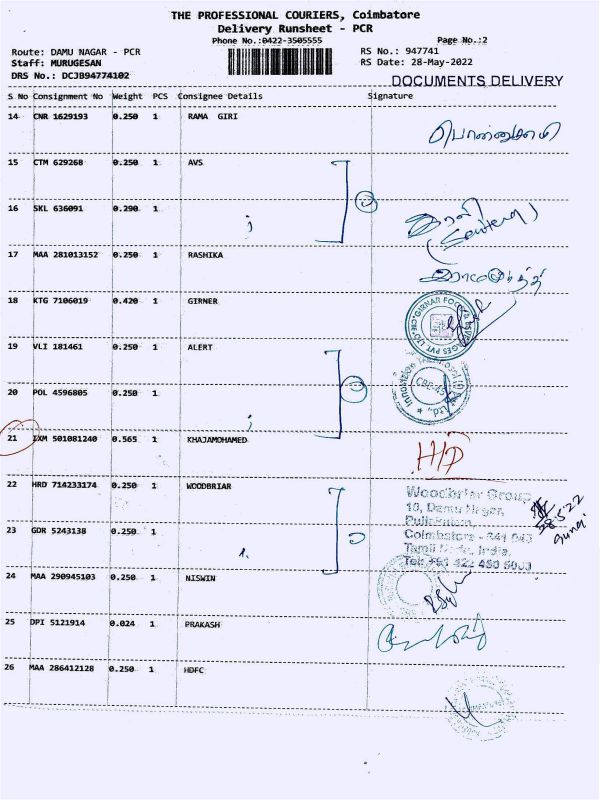 THE PROFESSIONAL COURIERS, Coimbatore
Delivery Runsheet - PCR
Phone No.:0422-3505555
Page No.:2
Route: DAMU NAGAR - PCR
RS No.: 947741
Staff: MURUGESAN
RS Date: 28-May-2022
DRS No.: DCJB94774102
DOCUMENTS DELIVERY
S No Consignment No Weight PCS Consignee Details Signature
14 CNR 1629193 0.250 1 RAMA GIRI
15 CTM 629268 0.250 1 AVS
16 SKL 636091 0.290 1
17 MAA 281013152 0.250 1 RASHIKA
18 KTG 7106019 0.420 1 GIRNER
19 VLI 181461 0.250 1 ALERT
20 POL 4596805 0.250 1
21 IXM 501081240 0.565 1 KHAJAMOHAMED
22 HRD 714233174 0.250 1 WOODBRIAR
Woodbriar Group
10, Damu Nagar,
Pulikulam,
28.5.22
23 GDR 5243138 0.250 1
Coimbatore - 641 045
Tamil Nadu, India.
24 MAA 290945103 0.250 1 NISWIN
25 DPI 5121914 0.024 1 PRAKASH
26 MAA 286412128 0.250 1 HDFC